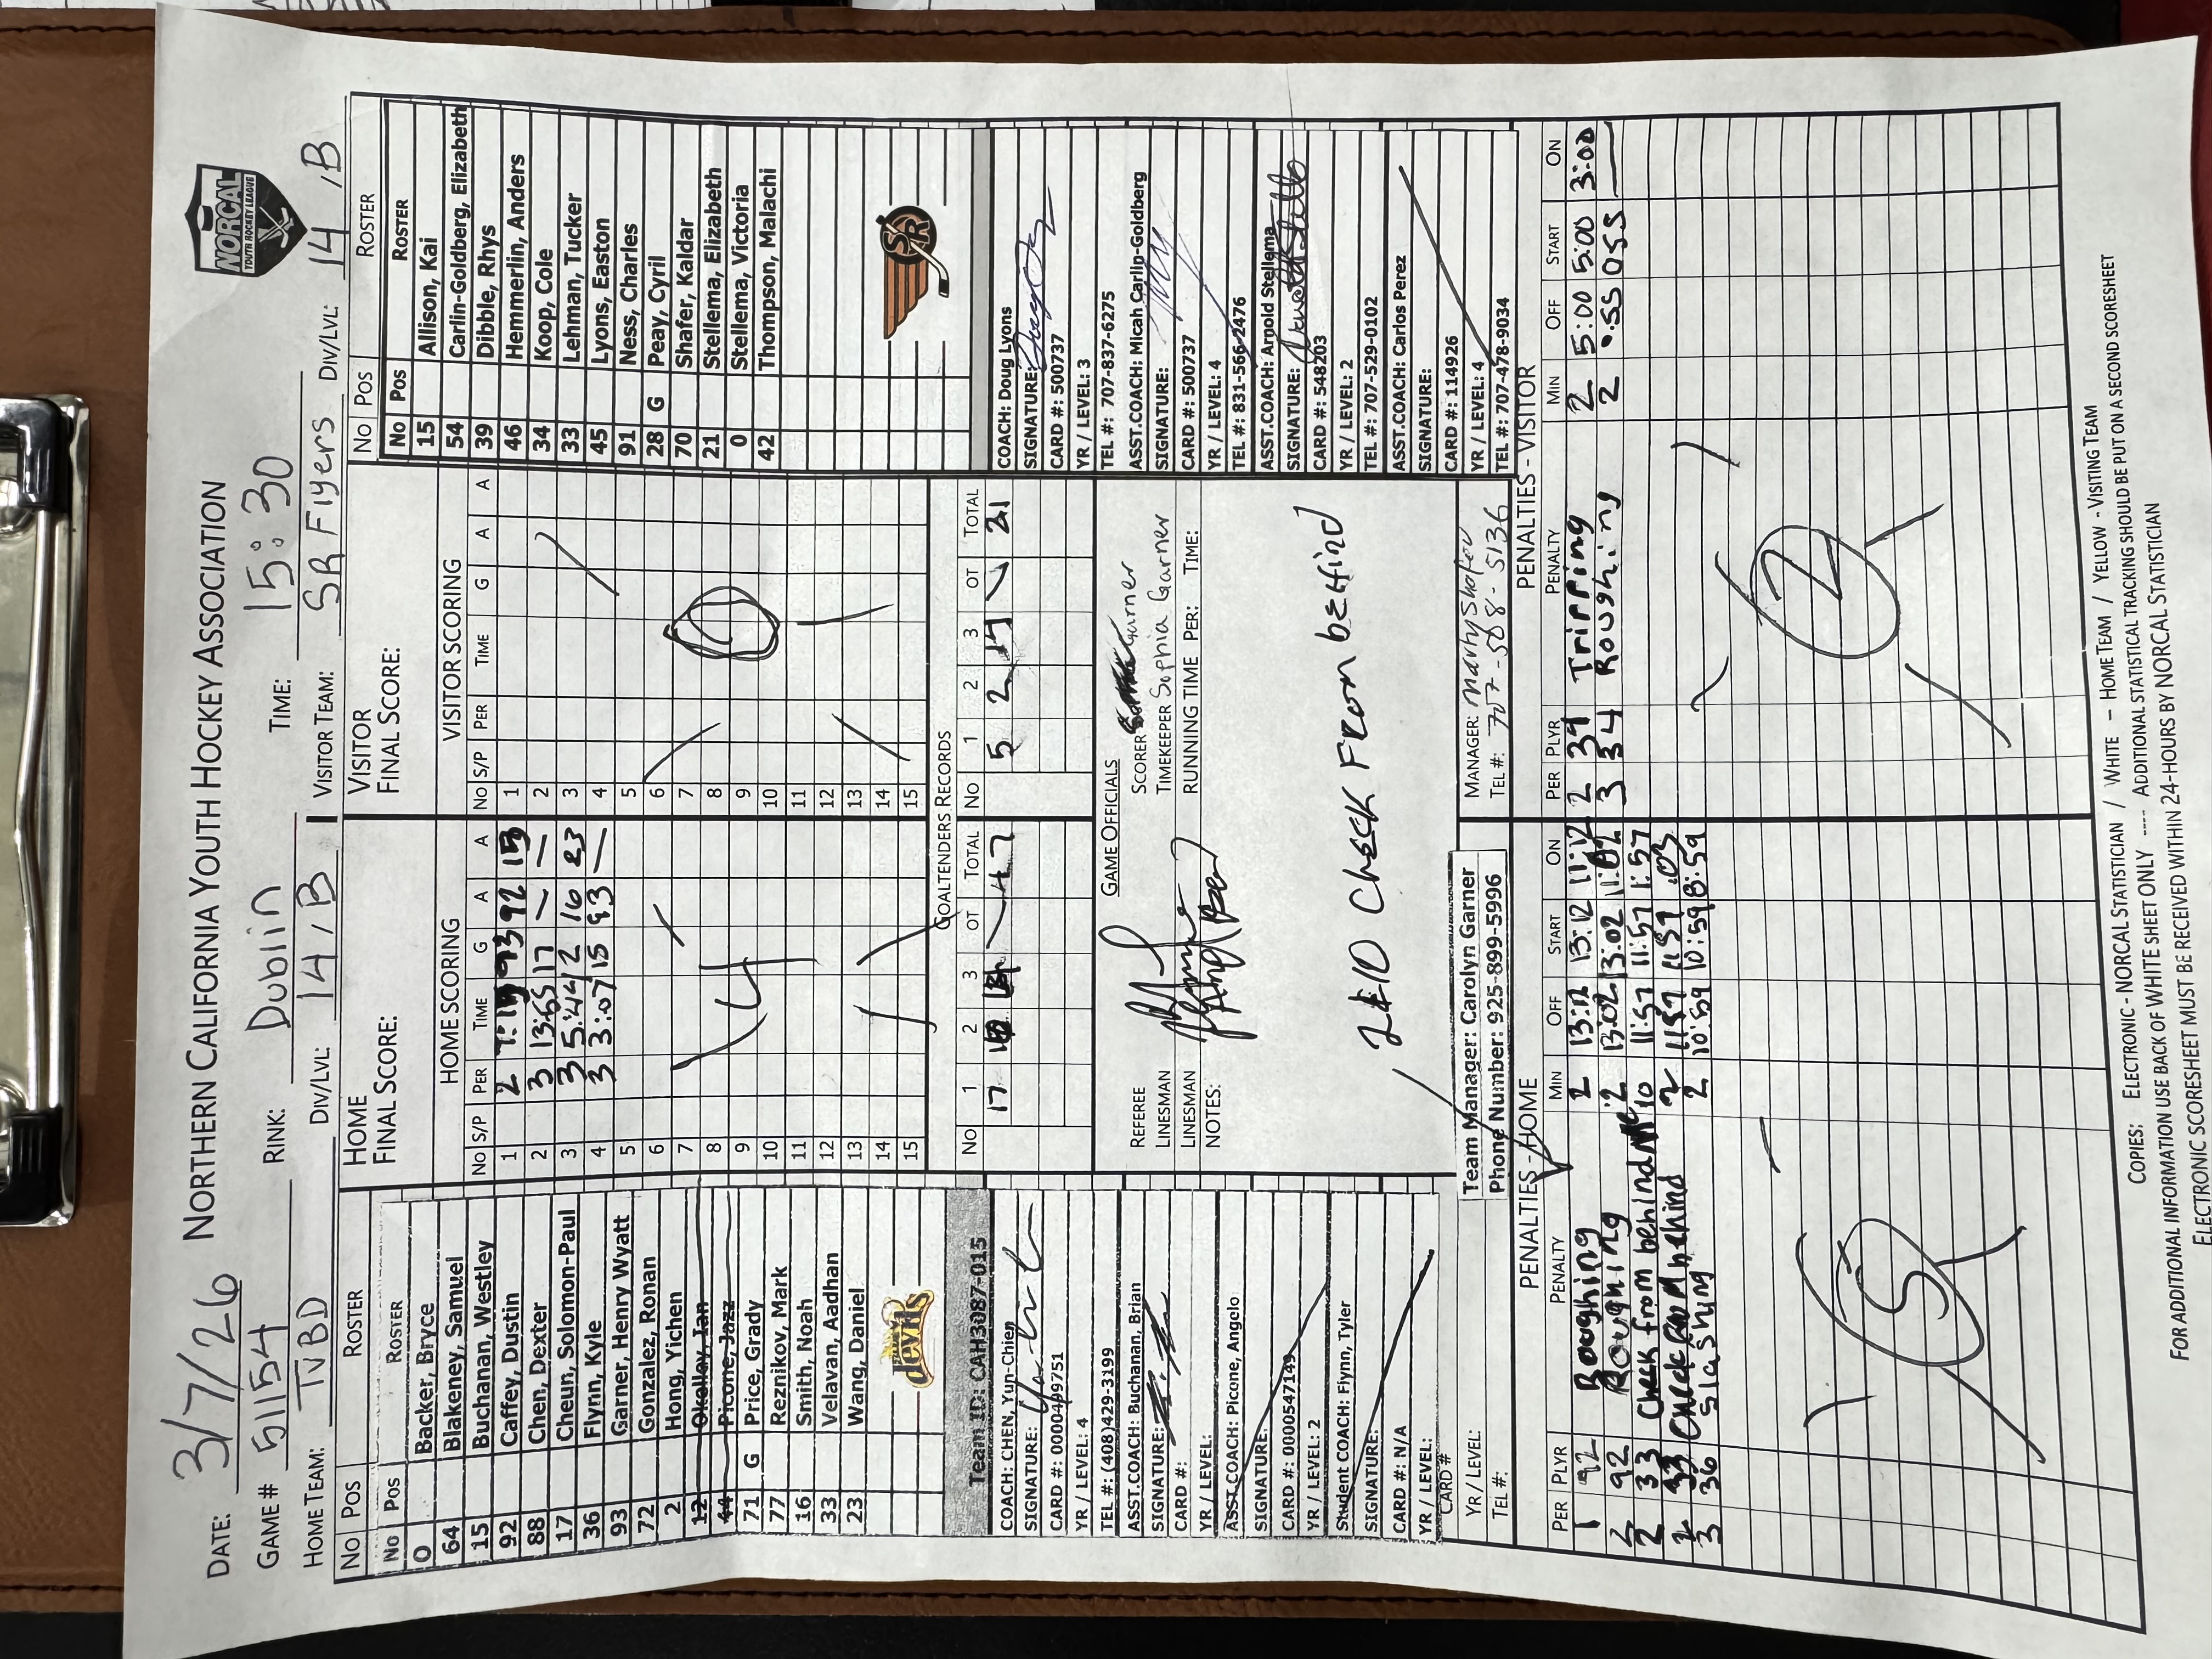 DATE: 3/7/26 NORTHERN CALIFORNIA YOUTH HOCKEY ASSOCIATION
NORCAL
YOUTH HOCKEY LEAGUE
GAME # 51154 RINK: Dublin TIME: 15:30
HOME TEAM: TVBD DIV/LVL: 14 / B VISITOR TEAM: SR Flyers DIV/LVL: 14 / B
No Pos ROSTER
No Pos ROSTER
0 Backer, Bryce
64 Blakeney, Samuel
15 Buchanan, Westley
92 Caffey, Dustin
88 Chen, Dexter
17 Cheun, Solomon-Paul
36 Flynn, Kyle
93 Garner, Henry Wyatt
72 Gonzalez, Ronan
2 Hong, Yichen
12 Okelley, Ian
44 Picone, Jazz
71 G Price, Grady
77 Reznikov, Mark
16 Smith, Noah
33 Velavan, Aadhan
23 Wang, Daniel
devils
HOME
FINAL SCORE:
HOME SCORING
No S/P PER TIME G A A
1 2 93 92 15
2 3 13:55 17 — —
3 3 5:44 2 16 23
4 3 3:07 15 93 —
5
6
7
8
9
10
11
12
13
14
15
4
VISITOR
FINAL SCORE:
VISITOR SCORING
No S/P PER TIME G A A
1
2
3
4
5
6
7
8
9
10
11
12
13
14
15
0
No Pos ROSTER
No Pos ROSTER
15 Allison, Kai
54 Carlin-Goldberg, Elizabeth
39 Dibble, Rhys
46 Hemmerlin, Anders
34 Koop, Cole
33 Lehman, Tucker
45 Lyons, Easton
91 Ness, Charles
28 G Peay, Cyril
70 Shafer, Kaldar
21 Stellema, Elizabeth
0 Stellema, Victoria
42 Thompson, Malachi
SR
GOALTENDERS RECORDS
No 1 2 3 OT TOTAL No 1 2 3 OT TOTAL
17 47 5 2 14 21
Team ID: CAH3087-015
COACH: CHEN, Yun-Chien
SIGNATURE:
CARD #: 0000499751
YR / LEVEL: 4
TEL #: (408)429-3199
ASST.COACH: Buchanan, Brian
SIGNATURE:
CARD #:
YR / LEVEL:
ASST.COACH: Picone, Angelo
SIGNATURE:
CARD #: 0000547149
YR / LEVEL: 2
Student COACH: Flynn, Tyler
SIGNATURE:
CARD #: N/A
YR / LEVEL:
CARD #
YR / LEVEL:
TEL #:
GAME OFFICIALS
REFEREE SCORER Garner
LINESMAN TIMEKEEPER Sophia Garner
LINESMAN RUNNING TIME PER: TIME:
NOTES:
2+10 Check From behind
Team Manager: Carolyn Garner
Phone Number: 925-899-5996
MANAGER: Marty Shafer
TEL #: 707-508-5136
COACH: Doug Lyons
SIGNATURE:
CARD #: 500737
YR / LEVEL: 3
TEL #: 707-837-6275
ASST.COACH: Micah Carlin-Goldberg
SIGNATURE:
CARD #: 500737
YR / LEVEL: 4
TEL #: 831-566-2476
ASST.COACH: Arnold Stellema
SIGNATURE:
CARD #: 548203
YR / LEVEL: 2
TEL #: 707-529-0102
ASST.COACH: Carlos Perez
SIGNATURE:
CARD #: 114926
YR / LEVEL: 4
TEL #: 707-478-9034
PENALTIES - HOME
PER PLYR PENALTY MIN OFF START ON
1 92 Roughing 2 13:12 13:12 11:12
2 92 Roughing 2 13:02 13:02 11:02
2 33 Check from behind 10 11:57 11:57 1:57
2 33 Check from behind 2 11:57 11:57
3 36 Slashing 2 10:59 10:59 8:59
5
PENALTIES - VISITOR
PER PLYR PENALTY MIN OFF START ON
2 34 Tripping 2 5:00 5:00 3:00
3 34 Roughing 2 .55 055 —
2
COPIES: ELECTRONIC - NORCAL STATISTICIAN / WHITE – HOME TEAM / YELLOW - VISITING TEAM
FOR ADDITIONAL INFORMATION USE BACK OF WHITE SHEET ONLY ---- ADDITIONAL STATISTICAL TRACKING SHOULD BE PUT ON A SECOND SCORESHEET
ELECTRONIC SCORESHEET MUST BE RECEIVED WITHIN 24-HOURS BY NORCAL STATISTICIAN